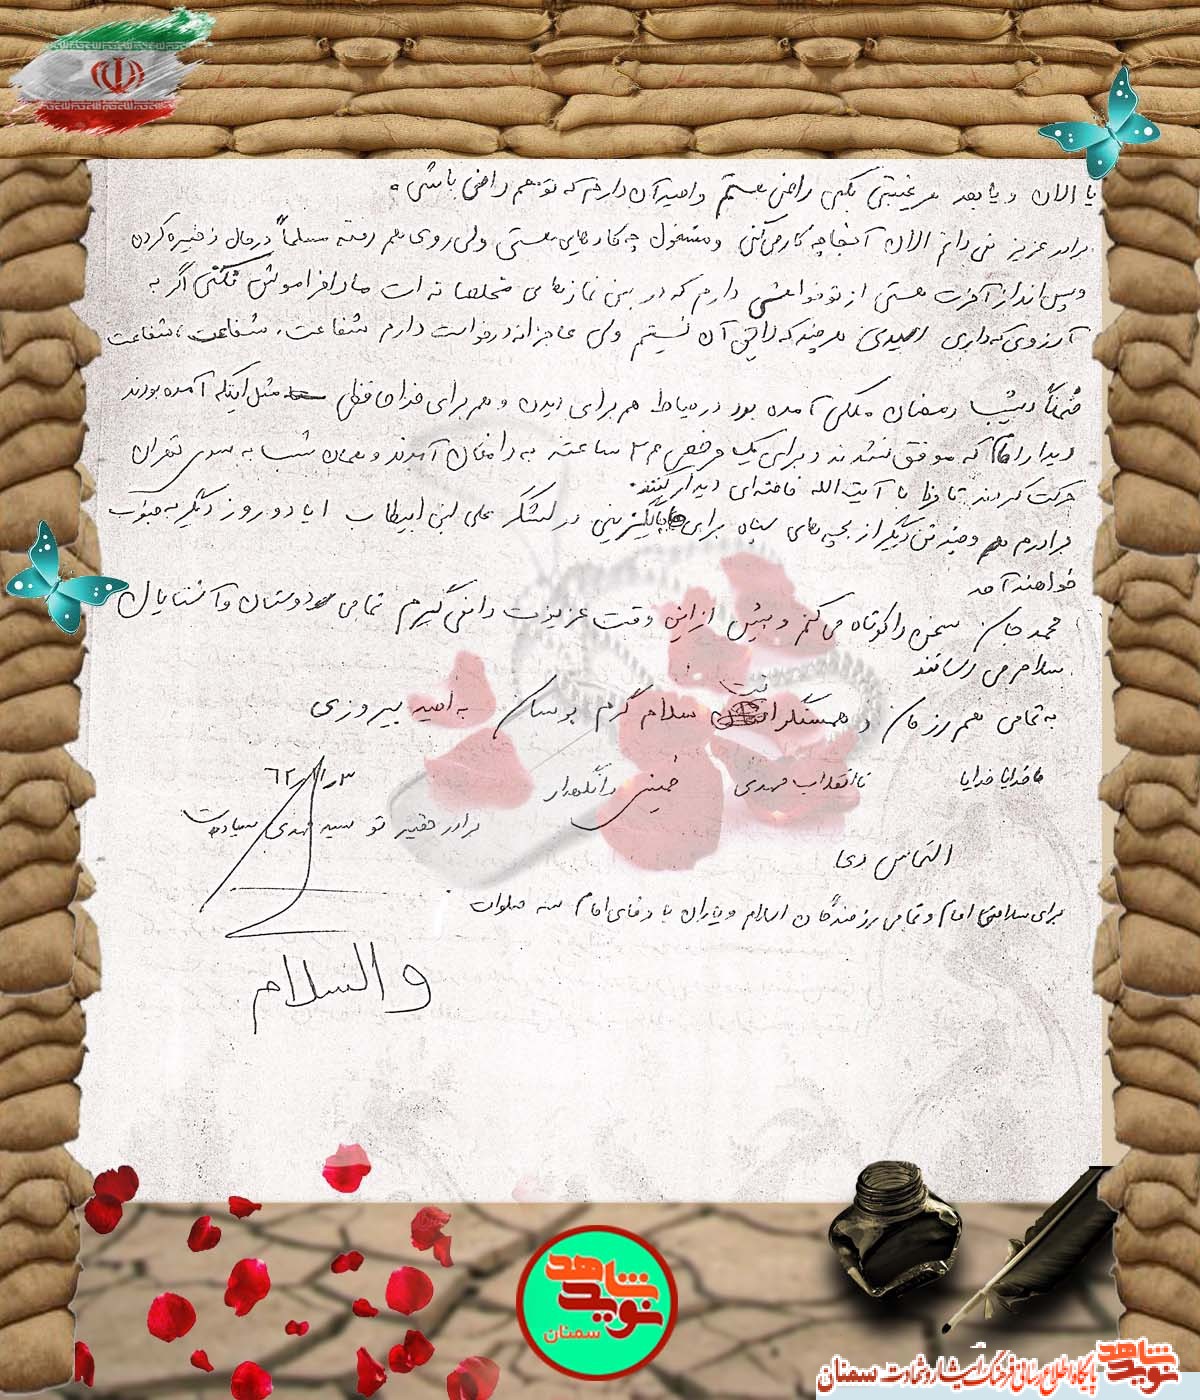 یا الان و یا بعد هر غیبتی بکنی راضی هستم و امید آن دارم که تو هم راضی باشی.
برادر عزیز نمی دانم الان آنجا چه کار می کنی و مشغول چه کارهایی هستی ولی روی هم رفته مسلماً در حال ذخیره کردن
و پس انداز آخرت هستی از تو خواهشی دارم که در بین نمازهای مخلصانه ات ما را فراموش نکنی اگر به
آرزوی که داری رسیدی هر چند که لایق آن نیستم ولی عاجزانه درخواست دارم شفاعت، شفاعت، شفاعت
ضمناً دیشب رمضان ملکی آمده بود در حیاط هم برای دیدن و هم برای خداحافظی مثل اینکه آمده بودند
دیدار امام که موفق نشدند و برای یک مرخصی ۲۴ ساعته به دامغان آمدند و همان شب به سوی تهران
حرکت کردند تا فردا با آیت الله خامنه ای دیدار کنند.
برادرم و چند تن دیگر از بچه های سپاه برای جایگزینی در لشگر علی ابن ابیطالب تا دو روز دیگر به جنوب
خواهند آمد
محمد جان سخن را کوتاه می کنم و بیش از این وقت عزیزت را نمی گیرم تمامی دوستان و آشنایان
سلام می رسانند
به تمامی هم رزمان و همسنگرانت سلام گرم برسان به امید پیروزی
خدایا خدایا تا انقلاب مهدی خمینی را نگهدار ۶۲/۱/۳
برادر حقیر تو سید مهدی سیادت
التماس دعا
برای سلامتی امام و تمامی رزمندگان اسلام و یاران با وفای امام سه صلوات
والسلام
شاهد
نوید
سمنان
نوید شاهد
پایگاه اطلاع رسانی فرهنگ ایثار و شهادت سمنان